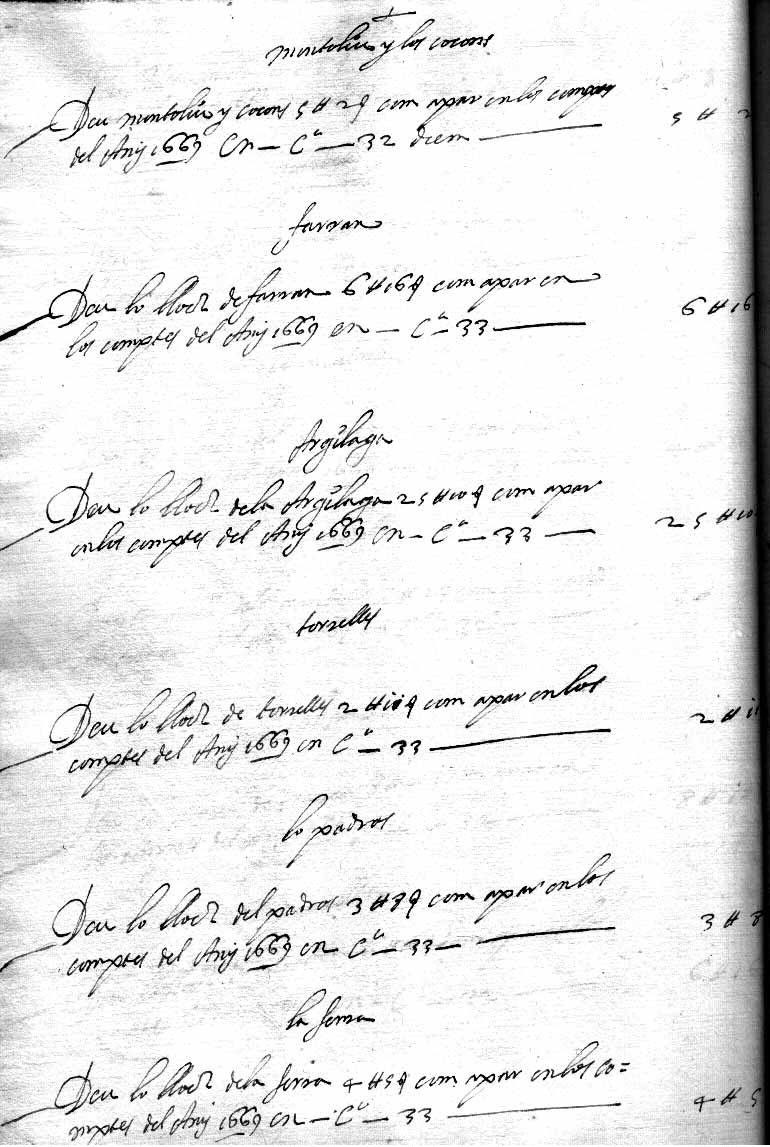 montoliu y los cocons
Deu montoliu y cocons 5 # 2 ₰ com apar en los comptes 5 # 2
del Any 1669 En — Cª — 32 diem
farran
Deu lo lloch de farran 6 # 16 ₰ com apar en 6 # 16
los comptes del Any 1669 en — Cª — 33
Argilaga
Deu lo lloch dela Argilaga 25 # 10 ₰ com apar
en los comptes del Any 1669 En — Cª — 33 — 25 # 10
torrelles
Deu lo lloch de torrelles 2 # 10 ₰ com apar en los 2 #
comptes del Any 1669 en Cª — 33
lo padros
Deu lo lloch del padros 3 # 8 ₰ com apar en los 3 # 8
comptes del Any 1669 en Cª — 33 —
la serra
Deu lo lloch dela serra 4 # 5 ₰ com apar en los co=
mptes del Any 1669 en — Cª — 33 4 # 5